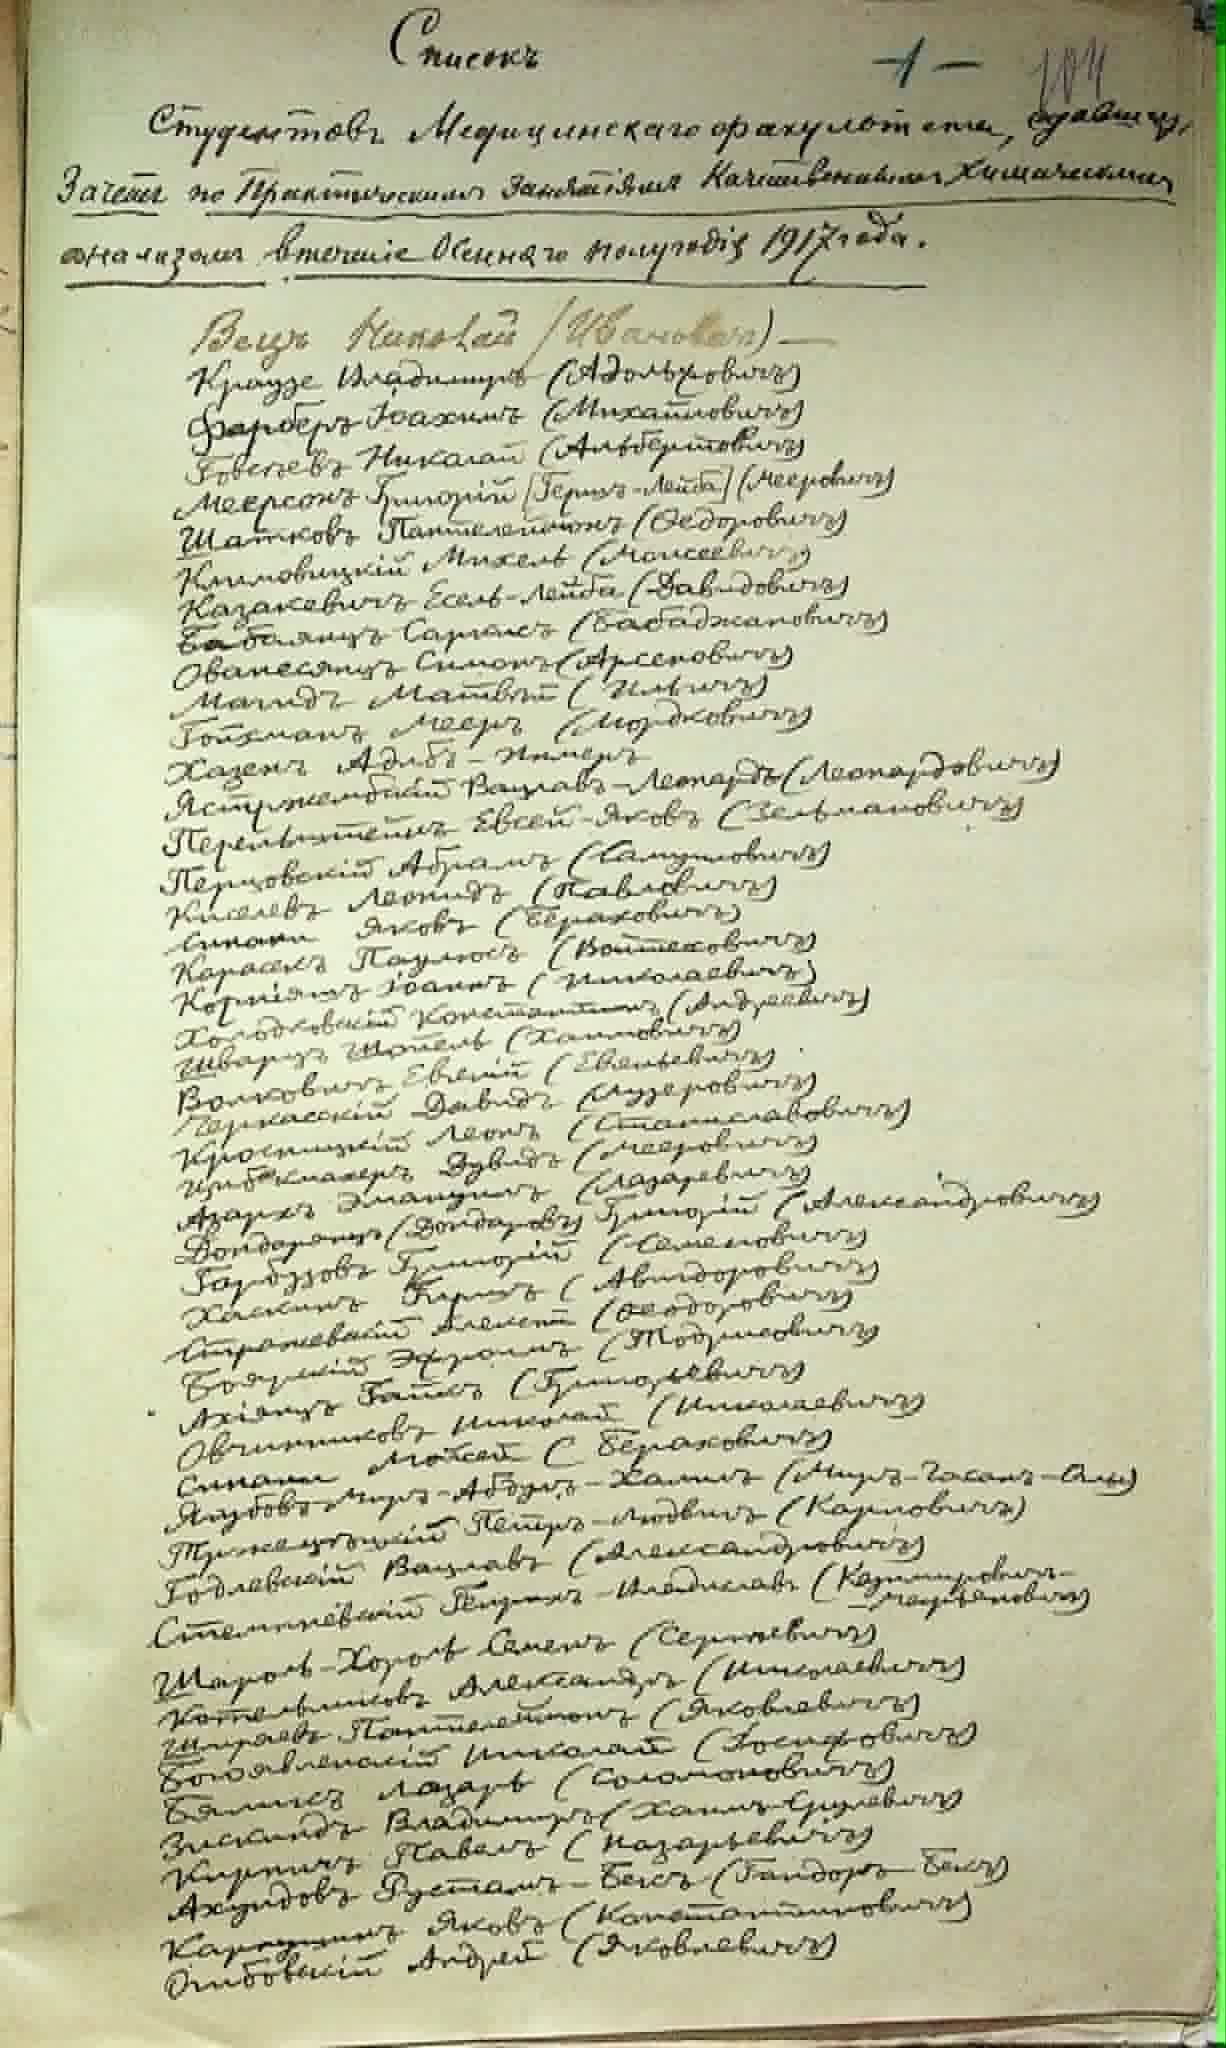 Списокъ
-1- 104
Студентовъ Медицинскаго факультета, сдавших,
Зачетъ по Практическимъ Занятіямъ Качественнымъ Химическимъ
анализамъ втеченіе Осенняго полугодія 1917 года.
Вецъ Николай (Ивановичъ) —
Краузе Владимиръ (Адольфовичъ)
Фарберъ Іоахимъ (Михайловичъ)
Николай (Альбертовичъ)
Меерсонъ Григорій [Герцъ-Лейба] (Мееровичъ)
Шатковъ Пантелеймонъ (Федоровичъ)
Климовицкій Михель (Моисеевичъ)
Казакевичъ Есель-Лейба (Давидовичъ)
Бабаянцъ Саркисъ (Бабаджановичъ)
Ованесянцъ Симонъ (Арсеновичъ)
Магидъ Матвѣй (Ильичъ)
Гойхманъ Мееръ (Мордковичъ)
Хазенъ
Ястржембскій Вацлавъ-Леонардъ (Леонардовичъ)
Перельштейнъ Евсей-Яковъ (Зельмановичъ)
Перцовскій Абрамъ (Самуиловичъ)
Киселевъ Леонидъ (Павловичъ)
Синани Яковъ (Бераховичъ)
Карасекъ Паулюсъ (Войтеховичъ)
Іоаннъ (Николаевичъ)
Холодковскій Константинъ (Андреевичъ)
Шварцъ Шмуель (Хаимовичъ)
Волковичъ Евгеній (Евгеньевичъ)
Черкасскій Давидъ (Лузеровичъ)
Кросницкій Леонъ (Станиславовичъ)
Дувидъ (Мееровичъ)
Азархъ Эмануилъ (Лазаревичъ)
Дондарянцъ (Дондаровъ) Григорій (Александровичъ)
Гарбузовъ Григорій (Семеновичъ)
Хаскинъ Гиршъ (Авигдоровичъ)
Стражевскій Алексѣй (Феодоровичъ)
Боярскій Эфроимъ (Тодрисовичъ)
Ахіянцъ Гайкъ (Григорьевичъ)
Овчинниковъ Николай (Николаевичъ)
Синани Мойсей (Бераховичъ)
Якубовъ Миръ-Абдулъ-Халилъ (Миръ-Гасанъ-Оглы)
Тржецецкій Петръ-Людвигъ (Карловичъ)
Годлевскій Вацлавъ (Александровичъ)
Стемпневскій Генрихъ-Владиславъ (Казимировичъ-
Мечиановичъ)
Шароль-Хороль Семенъ (Сергѣевичъ)
Котельниковъ Александръ (Николаевичъ)
Шираевъ Пантелеймонъ (Яковлевичъ)
Богоявленскій Николай (Іосифовичъ)
Бяликъ Лазарь (Соломоновичъ)
Зискиндъ Владимиръ (Хаимъ-Срулевичъ)
Кирпичъ Павелъ (Назарьевичъ)
Ахундовъ Рустамъ-Бекъ (Гайдаръ-Бекъ)
Яковъ (Константиновичъ)
Андрей (Яковлевичъ)